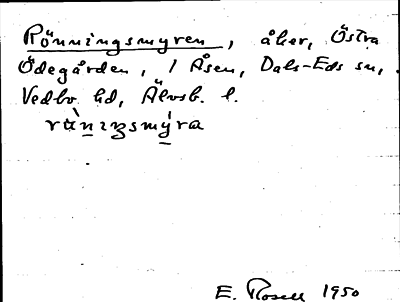 Rönningsmyren, åker, Östra
Ödegården, 1 Åsen, Dals-Eds sn,
Vedbo hd, Älvsb. l.
rὰnıŋsmýra
E. Rosell 1950